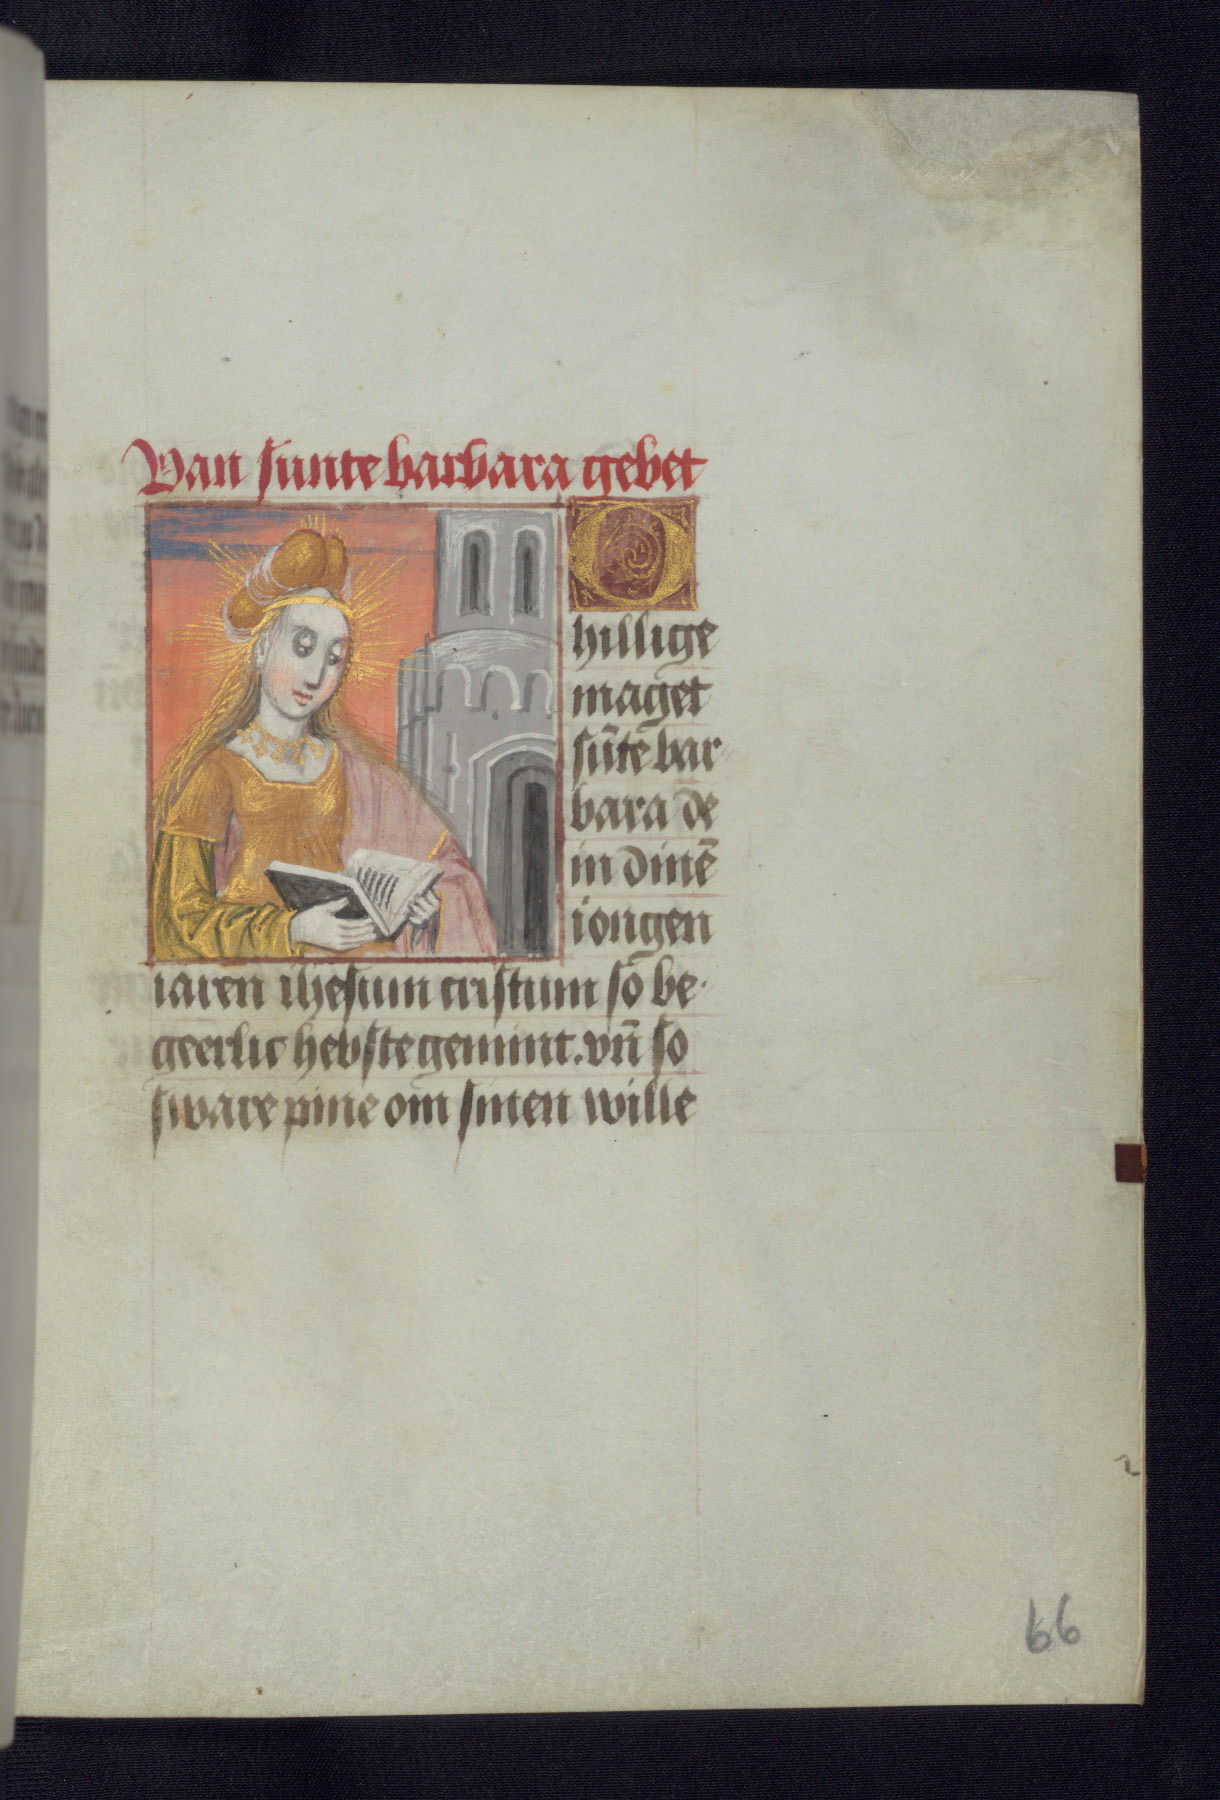 Van sunte barbara gebet
O
hillige
maget
sūte bar
bara de
in dinē
iongen
iaren ihesum cristum sō be-
geerlic hebste gemint. vn̄ so
sware pine om sinen wille
66